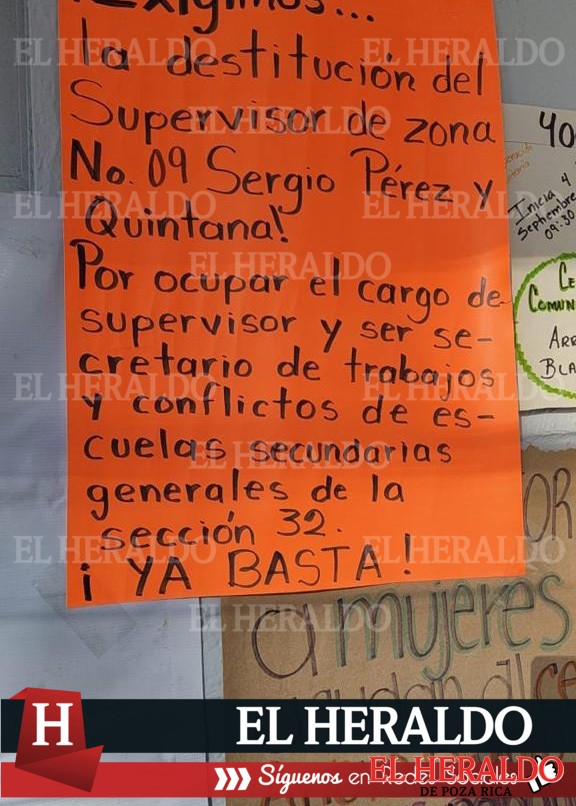 ¡Exigimos...
La destitución del
Supervisor de zona
No. 09 Sergio Pérez y
Quintana!
Por ocupar el cargo de
supervisor y ser se-
cretario de trabajos
y conflictos de es-
cuelas secundarias
generales de la
sección 32.
¡YA BASTA!
40
Inicia 4
Septiembre
09:30
COMUN
a mujeres
EL HERALDO
EL HERALDO
EL HERALDO
EL HERALDO
EL HERALDO
EL HERALDO
EL HERALDO
EL HERALDO
EL HERALDO
EL HERALDO
EL HERALDO
EL HERALDO
EL HERALDO
H EL HERALDO
Síguenos en Redes Sociales
EL HERALDO
DE POZA RICA